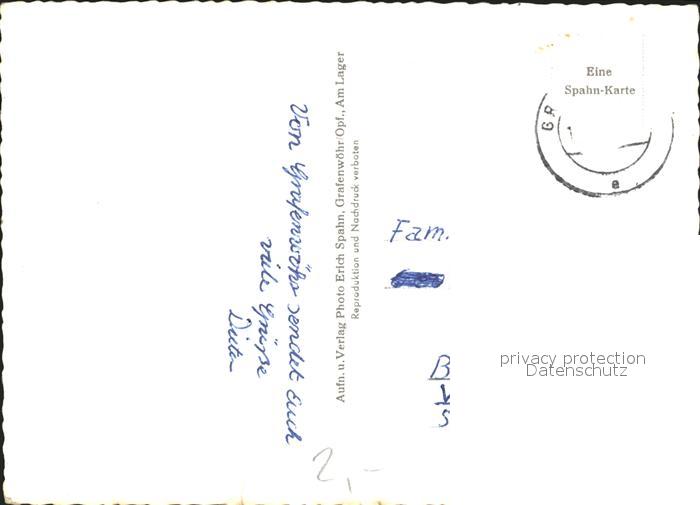 Von Grafenwöhr sendet Euch
viele Grüsse
Dieter
Aufn. u. Verlag Photo Erich Spahn, Grafenwöhr/Opf., Am Lager
Reproduktion und Nachdruck verboten
Eine
Spahn-Karte
GR
a
Fam.
privacy protection
Datenschutz
2,-